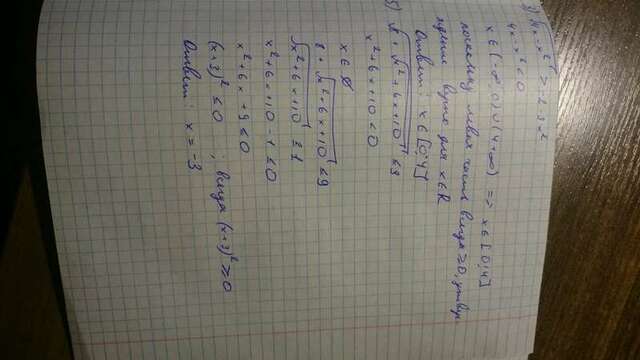 √4x-x² > -2-3x²
4x-x² < 0
x∈(-∞;0)∪(4+∞) => x∈[0;4]
поскольку левая часть всегда ≥0, утвер
ждение верно для x∈R
Ответ: x∈[0;4]
б) √8+√x²+6x+10 ≤ 3
x²+6x+10<0
x∈∅
8+√x²+6x+10 ≤ 9
√x²+6x+10 ≤ 1
x²+6x+10-1≤0
x²+6x+9≤0
(x+3)² ≤0 ; всегда (x+3)² ≥0
Ответ: x=-3